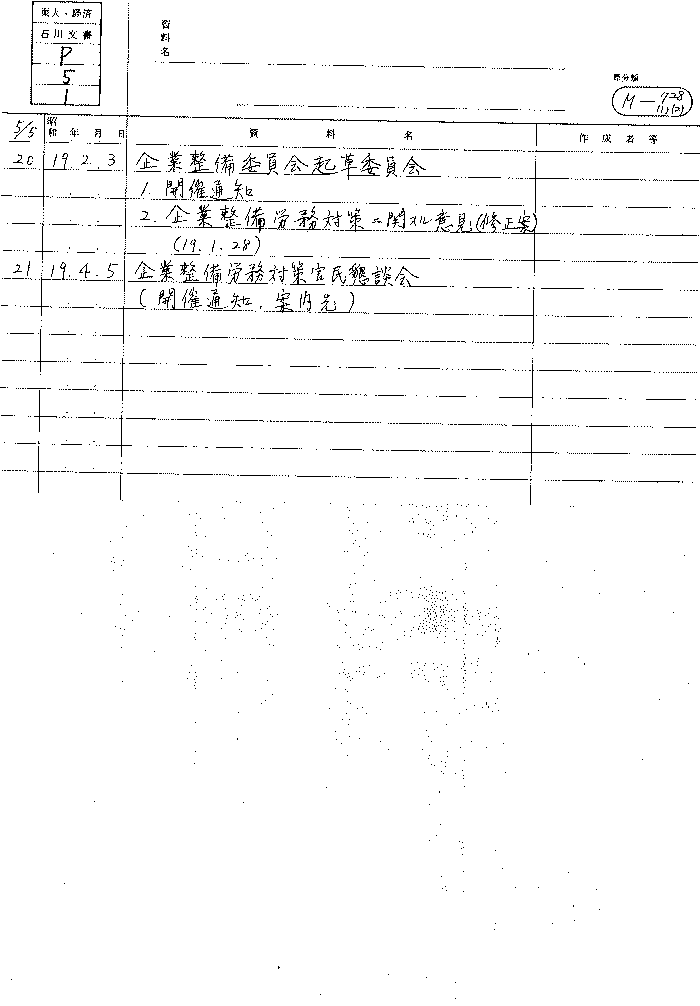 東大・経済
石川文書
P
5
1
資料名
原分類
M-928
(1)(2)
5/5
昭和 年 月 日
資 料 名
作 成 者 等
20 19.2.3 企業整備委員会起草委員会
1. 開催通知
2. 企業整備労務対策ニ関スル意見(修正案)
(19.1.28)
21 19.4.5 企業整備労務対策官民懇談会
(開催通知、案内先)